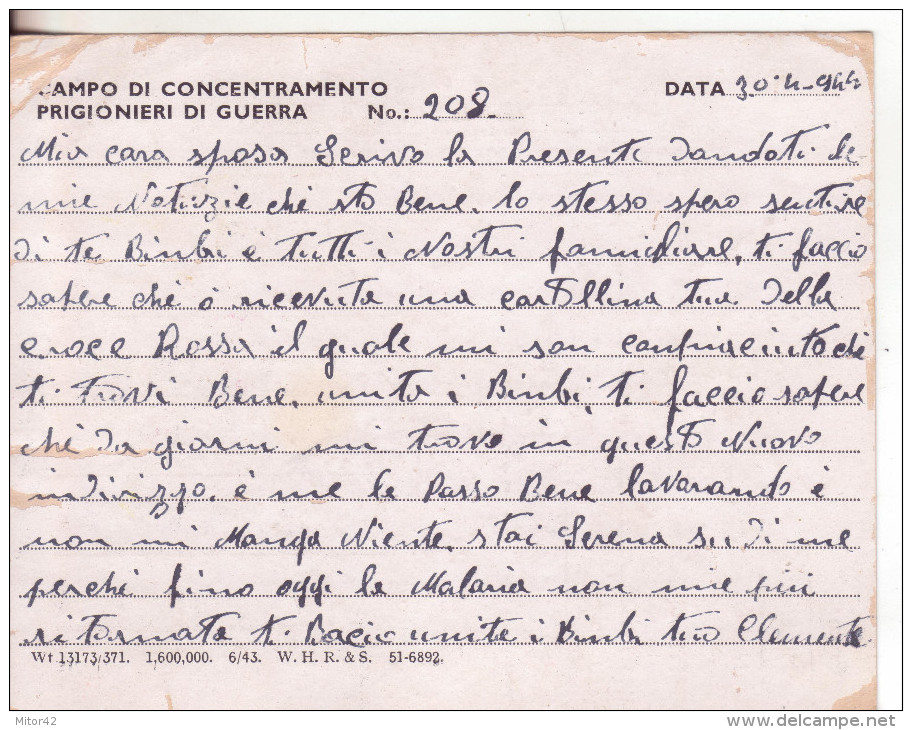 CAMPO DI CONCENTRAMENTO
PRIGIONIERI DI GUERRA No.: 208.
DATA 30-4-944
Mia cara sposa Scrivo la Presente Dandoti le
mie Notizie che sto Bene. lo stesso spero sentire
di te Binbi e tutti i Nostri famigliare, ti faccio
sapere che o ricevuta una cartollina tua della
croce Rossa il quale mi son conpiaciuto che
ti trovi Bene, unita i Binbi, ti faccio sapere
che da giorni mi trovo in questo Nuovo
indirizzo. e me la Passo Bene lavorando e
non mi Manga Niente. stai Serena su di me
perche fino oggi la Malaria non mie piu
ritornata ti Bacio unite i Binbi tuo Clemente.
Wt 13173/371. 1,600,000. 6/43. W. H. R. & S. 51-6892.
Mitor42
delcampe.net